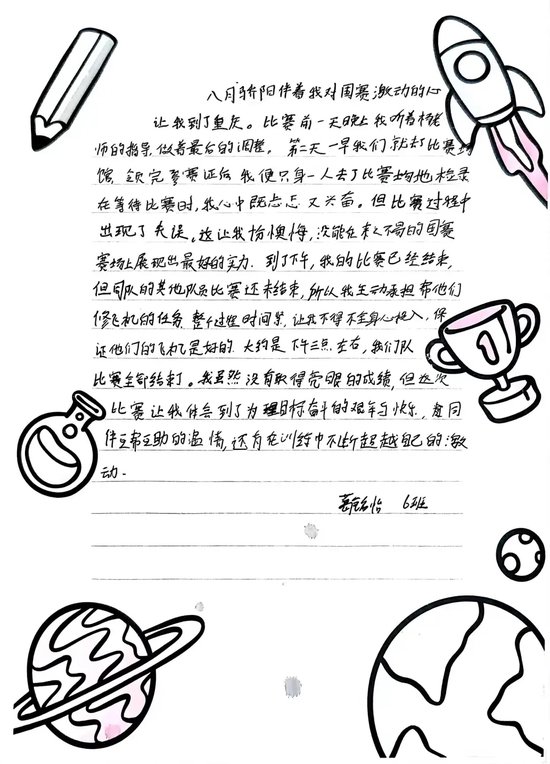 八月骄阳伴着我对国赛激动的心
让我到了重庆。比赛前一天晚上我听着
师的指导，做着最后的调整，第二天一早我们就去了比赛场
馆，领完参赛证后，我便只身一人去了比赛场地检录
在等待比赛时，我心中既忐忑又兴奋。但比赛过程中
出现了失误。这让我懊悔，没能在来之不易的国赛
赛场上展现出最好的实力，到了下午，我的比赛已经结束，
但团队的其他队员比赛还未结束，所以我主动承担帮他们
修飞机的任务，整个过程时间紧，让我不得不全身心投入，保
证他们的飞机是好的，大约是下午三点左右，我们队
比赛全部结束了。我虽然没有取得亮眼的成绩，但这次
比赛让我体会到了为理目标奋斗的艰辛与快乐，有同
伴互帮互助的温情，还有在训练中不断超越自己的激
动.
怡 6班
1